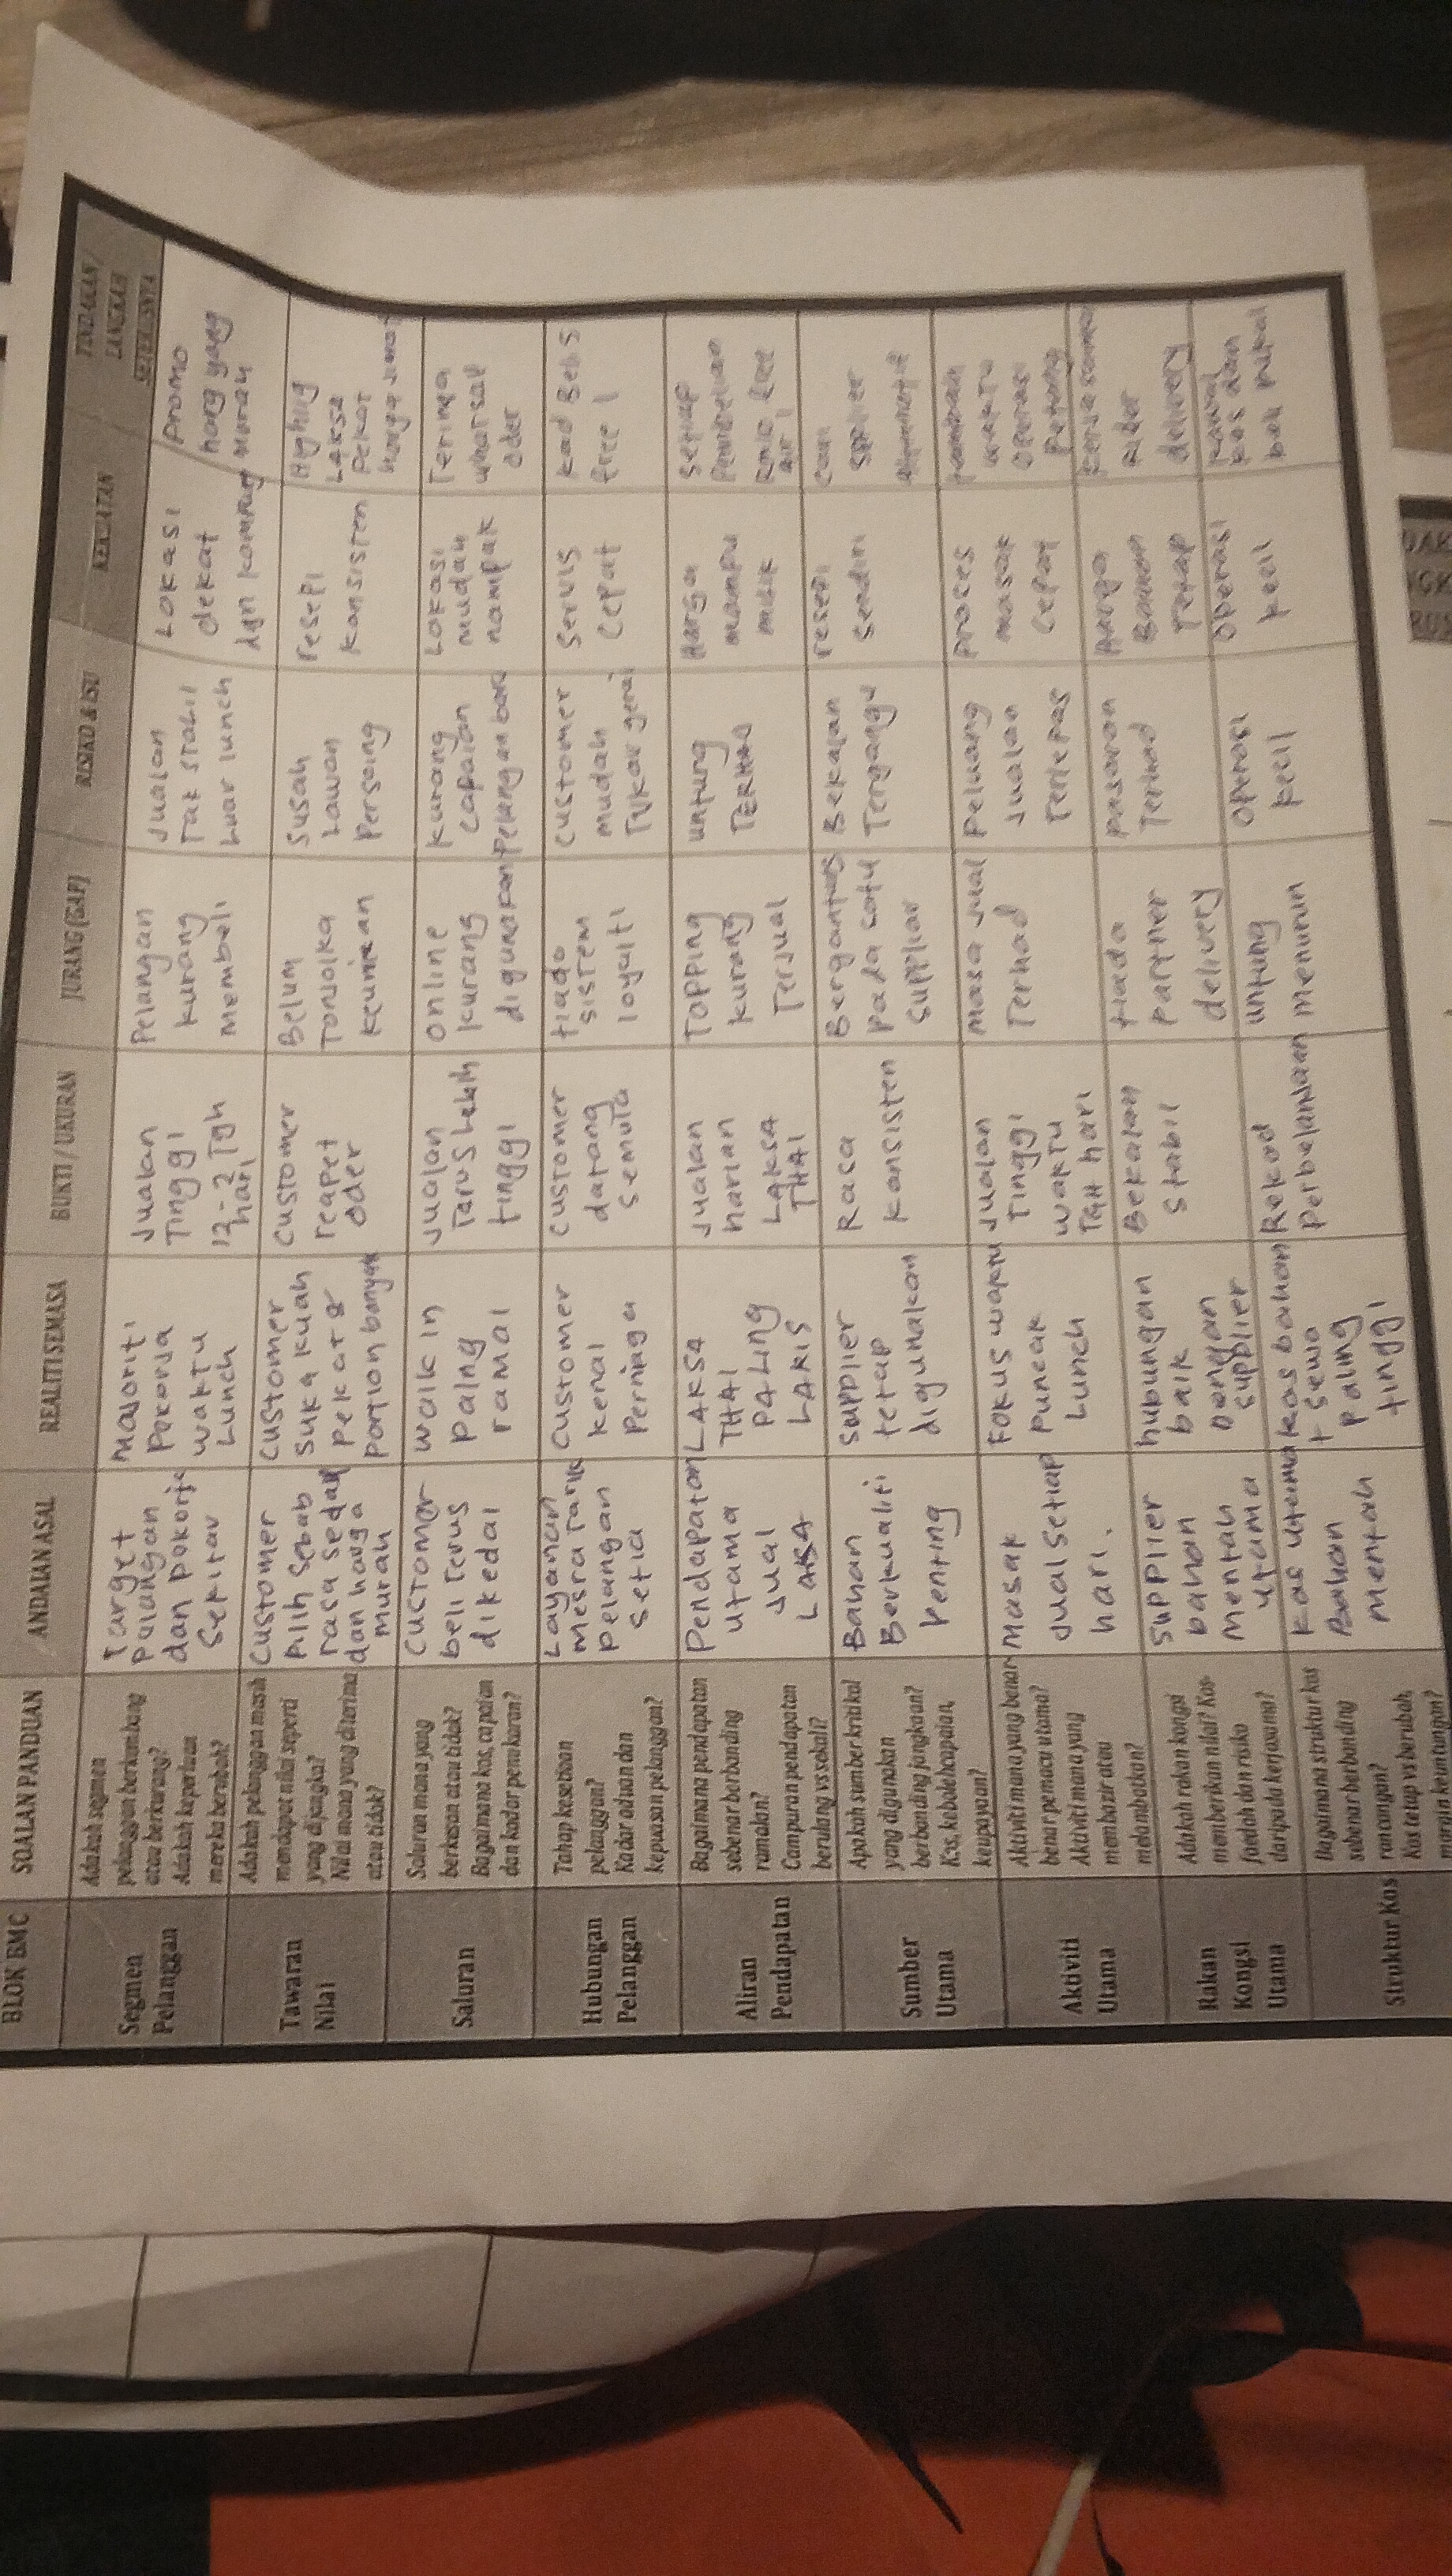 BLOK BMC
SOALAN PANDUAN
ANDAIAN ASAL
REALITI SEMASA
BUKTI / UKURAN
JURANG (GAP)
RISIKO & ISU
KEKUATAN
TINDAKAN /
LANGKAH
SETERUSNYA
Segmen
Pelanggan
Adakah segmen
pelanggan berkembang
atau berkurang?
Adakah keperluan
mereka berubah?
Target
pelangan
dan pekerja
sekitar
Majoriti
pekerja
waktu
Lunch
Jualan
Tinggi
12-2 Tgh
hari
Pelangan
kurang
membeli
Jualan
Tak stabil
Luar lunch
Lokasi
dekat
dgn
promo
harg yang
murah
Tawaran
Nilai
Adakah pelanggan masih
mendapat nilai seperti
yang dijangka?
Nilai mana yang diterima
atau tidak?
Customer
Pilih sebab
rasa sedap
dan harga
murah
Customer
suka kuah
pekat &
portion banyak
Customer
reapet
oder
Belum
keunikan
Susah
Lawan
Persaing
resepi
konsisten
Laksa
Pekat
Saluran
Saluran mana yang
berkesan atau tidak?
Bagaimana kos, capaian
dan kadar penukaran?
Customer
beli Terus
dikedai
walk in
palng
ramai
Jualan
Tarus Lebih
tinggi
online
kurang
digunakan
kurang
capaian
Pelangan baru
Lokasi
mudah
nampak
Terima
whatsap
oder
Hubungan
Pelanggan
Tahap kesetiaan
pelanggan?
Kadar aduan dan
kepuasan pelanggan?
Layanan
mesra Tarik
pelangan
setia
Customer
kenal
Perniaga
Customer
datang
semula
tiada
sistem
loyalti
Customer
mudah
Tukar gerai
servis
cepat
kad Beli 5
free 1
Aliran
Pendapatan
Bagaimana pendapatan
sebenar berbanding
ramalan?
Campuran pendapatan
berulang vs sekali?
Pendapatan
utama
Jual
LAKSA
LAKSA
THAI
PALING
LARIS
Jualan
harian
Laksa
THAI
Topping
kurang
Terjual
untung
TERHAD
Harga
mampu
milik
setiap
Pembelian
free
air
Sumber
Utama
Apakah sumber kritikal
yang digunakan
berbanding jangkaan?
Kos, kebolehcapaian,
keupayaan?
Bahan
Berkualiti
Penting
supplier
tetap
digunakan
Rasa
konsisten
Bergantung
pada satu
supplier
Bekalan
Terganggu
resepi
sendiri
cari
Aktiviti
Utama
Aktiviti mana yang benar-
benar pemacu utama?
Aktiviti mana yang
membazir atau
melambatkan?
Masak
Jual setiap
hari.
Fokus waktu
puncak
Lunch
Jualan
Tinggi
waktu
TGH hari
masa Jual
Terhad
Peluang
Jualan
Terlepas
proces
masak
cepat
waktu
operasi
Petang
Rakan
Kongsi
Utama
Adakah rakan kongsi
memberikan nilai? Kos-
faedah dan risiko
daripada kerjasama?
Supplier
bahan
Mentah
utama
hubungan
baik
Dengan
supplier
Bekalan
stabil
tiada
partner
delivery
pasaran
Terhad
Harga
Bahan
Tetap
Kerjasama
delivery
Struktur Kos
Bagaimana struktur kos
sebenar berbanding
rancangan?
Kos tetap vs berubah,
margin keuntungan?
Kos utama
Bahan
mentah
kos bahan
+ sewa
paling
tinggi
Rekod
perbelanjaan
untung
menurun
operasi
kecil
operasi
kecil
kawal
kos dan
beli pukal